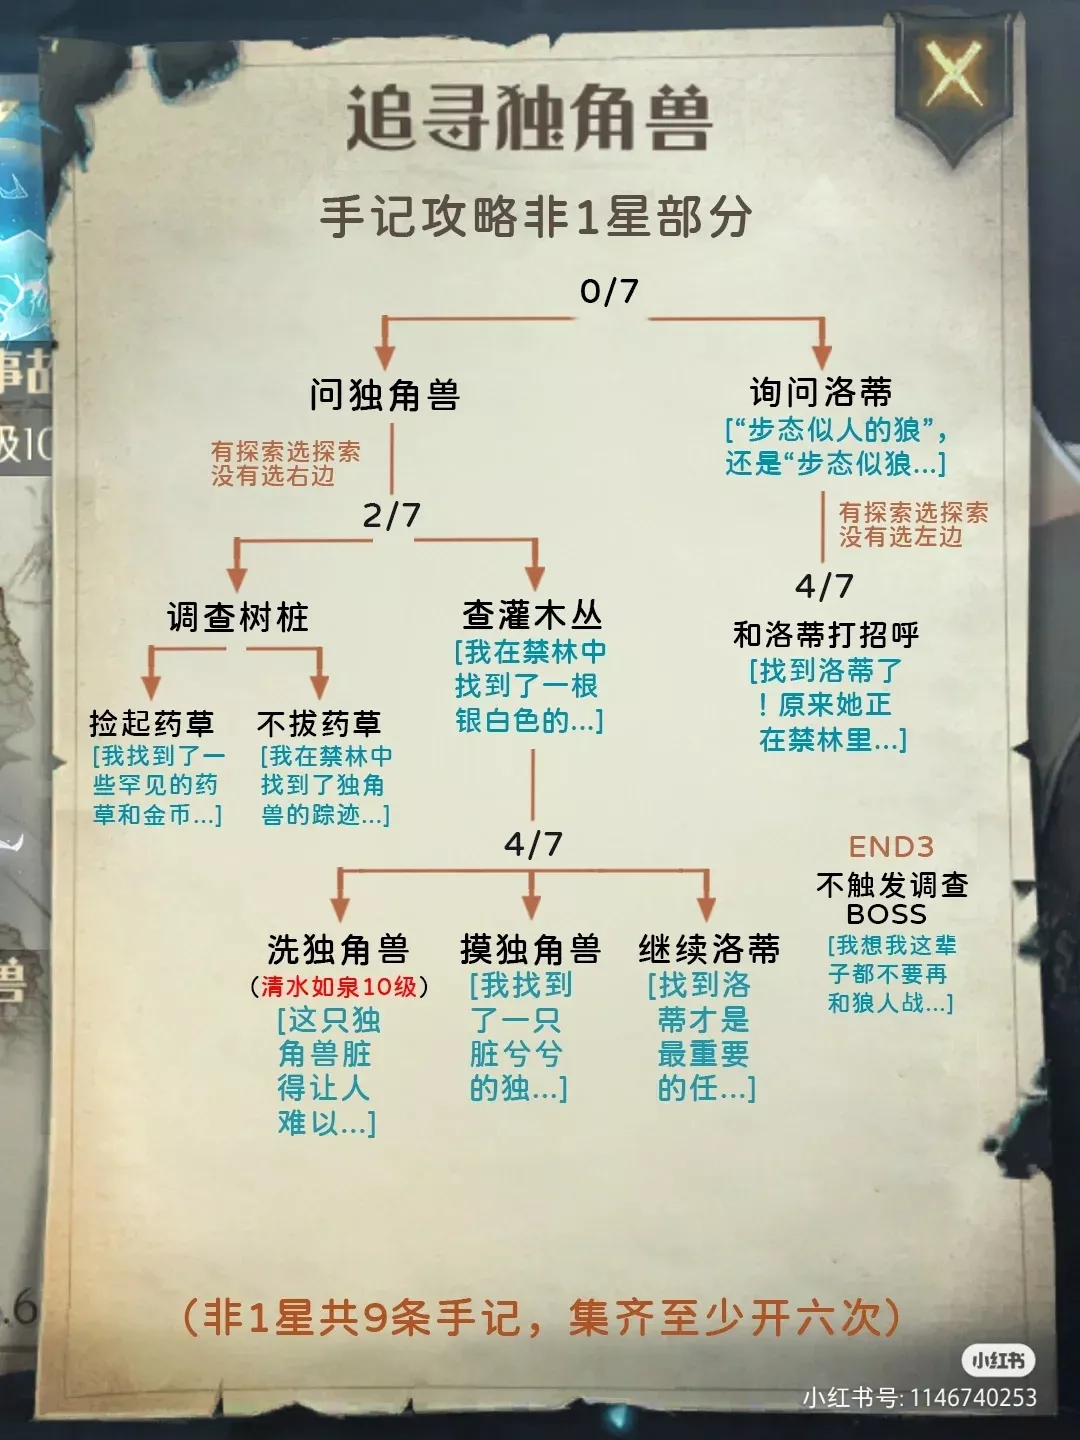 追寻独角兽
手记攻略非1星部分
0/7
问独角兽
询问洛蒂
[“步态似人的狼”，
还是“步态似狼...]
有探索选探索
没有选右边
有探索选探索
没有选左边
2/7
4/7
调查树桩
查灌木丛
[我在禁林中
找到了一根
银白色的...]
和洛蒂打招呼
[找到洛蒂了
！原来她正
在禁林里...]
捡起药草
[我找到了一
些罕见的药
草和金币...]
不拔药草
[我在禁林中
找到了独角
兽的踪迹...]
4/7
END3
不触发调查
BOSS
[我想我这辈
子都不要再
和狼人战...]
洗独角兽
（清水如泉10级）
[这只独
角兽脏
得让人
难以...]
摸独角兽
[我找到
了一只
脏兮兮
的独...]
继续洛蒂
[找到洛
蒂才是
最重要
的任...]
（非1星共9条手记，集齐至少开六次）
小红书
小红书号: 1146740253
事故
级10
兽
.6